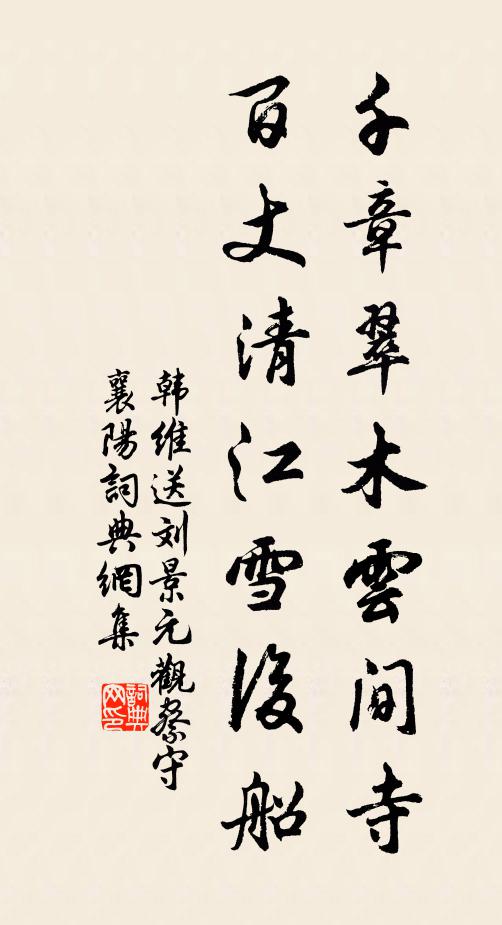 千章翠木雲間寺
百丈清江雪後船
韩維送刘景元觀察守
襄陽詞典網集
詞典网印